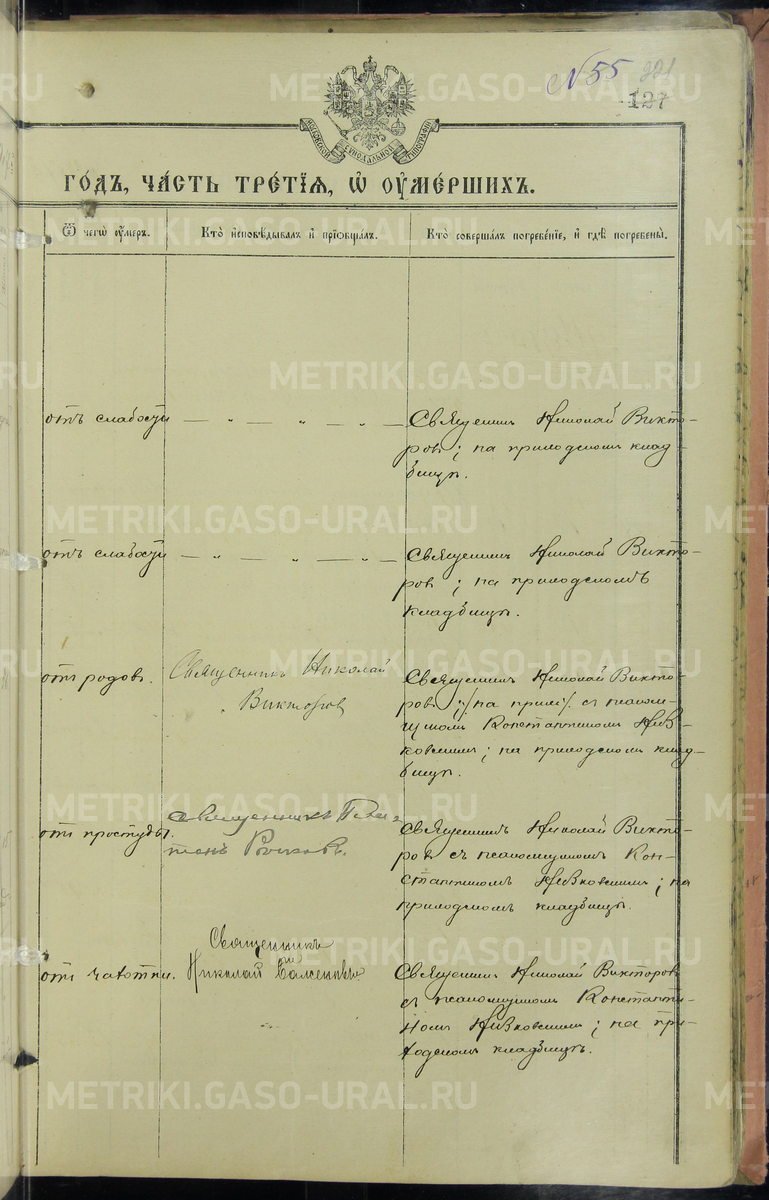 № 55 221
127
МОСКОВСКОЙ СѴНОДАЛЬНОЙ ТИПОГРАФІИ
ГО́ДЪ, ЧА́СТЬ ТРЕ́ТІѦ, Ѽ ОУ҆МЕ́РШИХЪ.
Ѿ чегѡ̀ оу҆́меръ.
Кто̀ и҆сповѣ́дывалъ и҆ прїѻбща́лъ.
Кто̀ соверша́лъ погребе́нїе, и҆ гдѣ̀ погребены̀.
отъ слабости — „ — „ — „ —
Священникъ Николай Викто-
ровъ; на приходскомъ клад-
бищѣ.
отъ слабости — „ — „ — „ —
Священникъ Николай Викто-
ровъ; на приходскомъ
кладбищѣ.
отъ родовъ.
Священникъ Николай
Викторовъ
Священникъ Николай Викто-
ровъ с псалом-
щикомъ Константиномъ
на приходскомъ клад-
бищѣ.
отъ простуды.
священникъ
Священникъ Николай Викто-
ровъ съ псаломщикомъ Кон-
стантиномъ на
приходскомъ кладбищѣ.
отъ чахотки.
Священникъ
Николай
Священникъ Николай Викторовъ
съ псаломщикомъ Константи-
номъ на при-
ходскомъ кладбищѣ.
METRIKI.GASO-URAL.RU